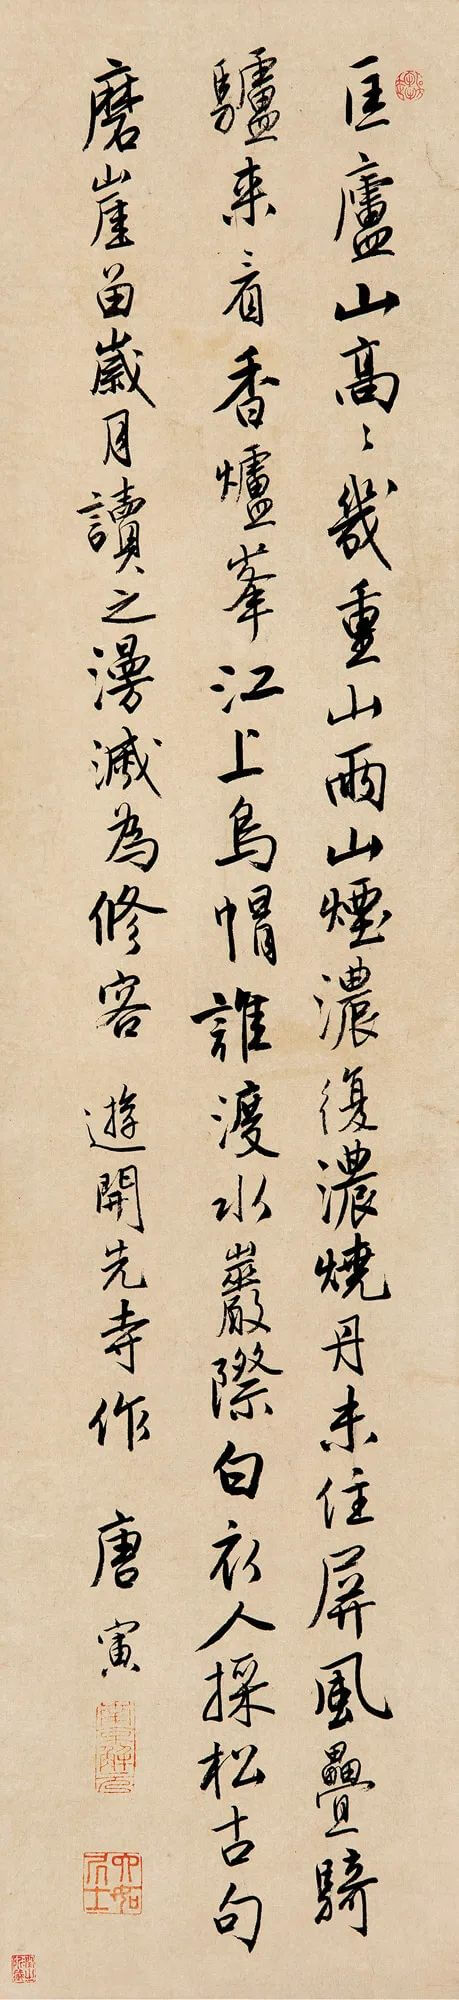 匡廬山高〻幾重山雨山煙濃復濃燒丹未住屏風疊騎
驢来看香爐峯江上烏帽誰渡水巖際白衣人採松古句
磨崖留歲月讀之漫滅為修容 遊開先寺作 唐寅
南京解元
六如居士